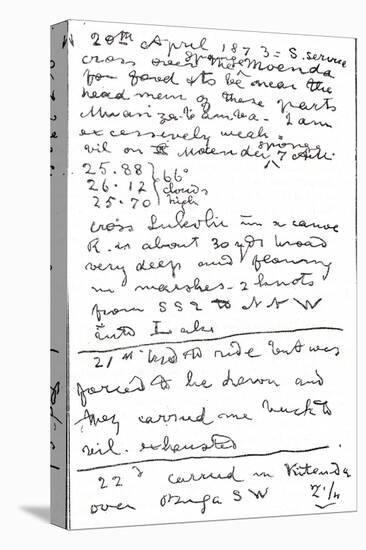 20th April 1873 = S. service
cross over the sponge Moenda
for food & to be near the
head men of these parts
Moanzambamba. I am
excessively weak -
vil on Moenda sponge 7 A.M.
25.88 } 66°
26.12 } clouds
25.70 } high
cross Lokulu in a canoe
R. is about 30 yds broad
very deep and flowing
in marshes - 2 knots
from SSE to NNW
into Lake
21st tried to ride but was
forced to lie down and
they carried me back to
vil. exhausted
22d carried in Kitanda
over Buga S W 2 1/4